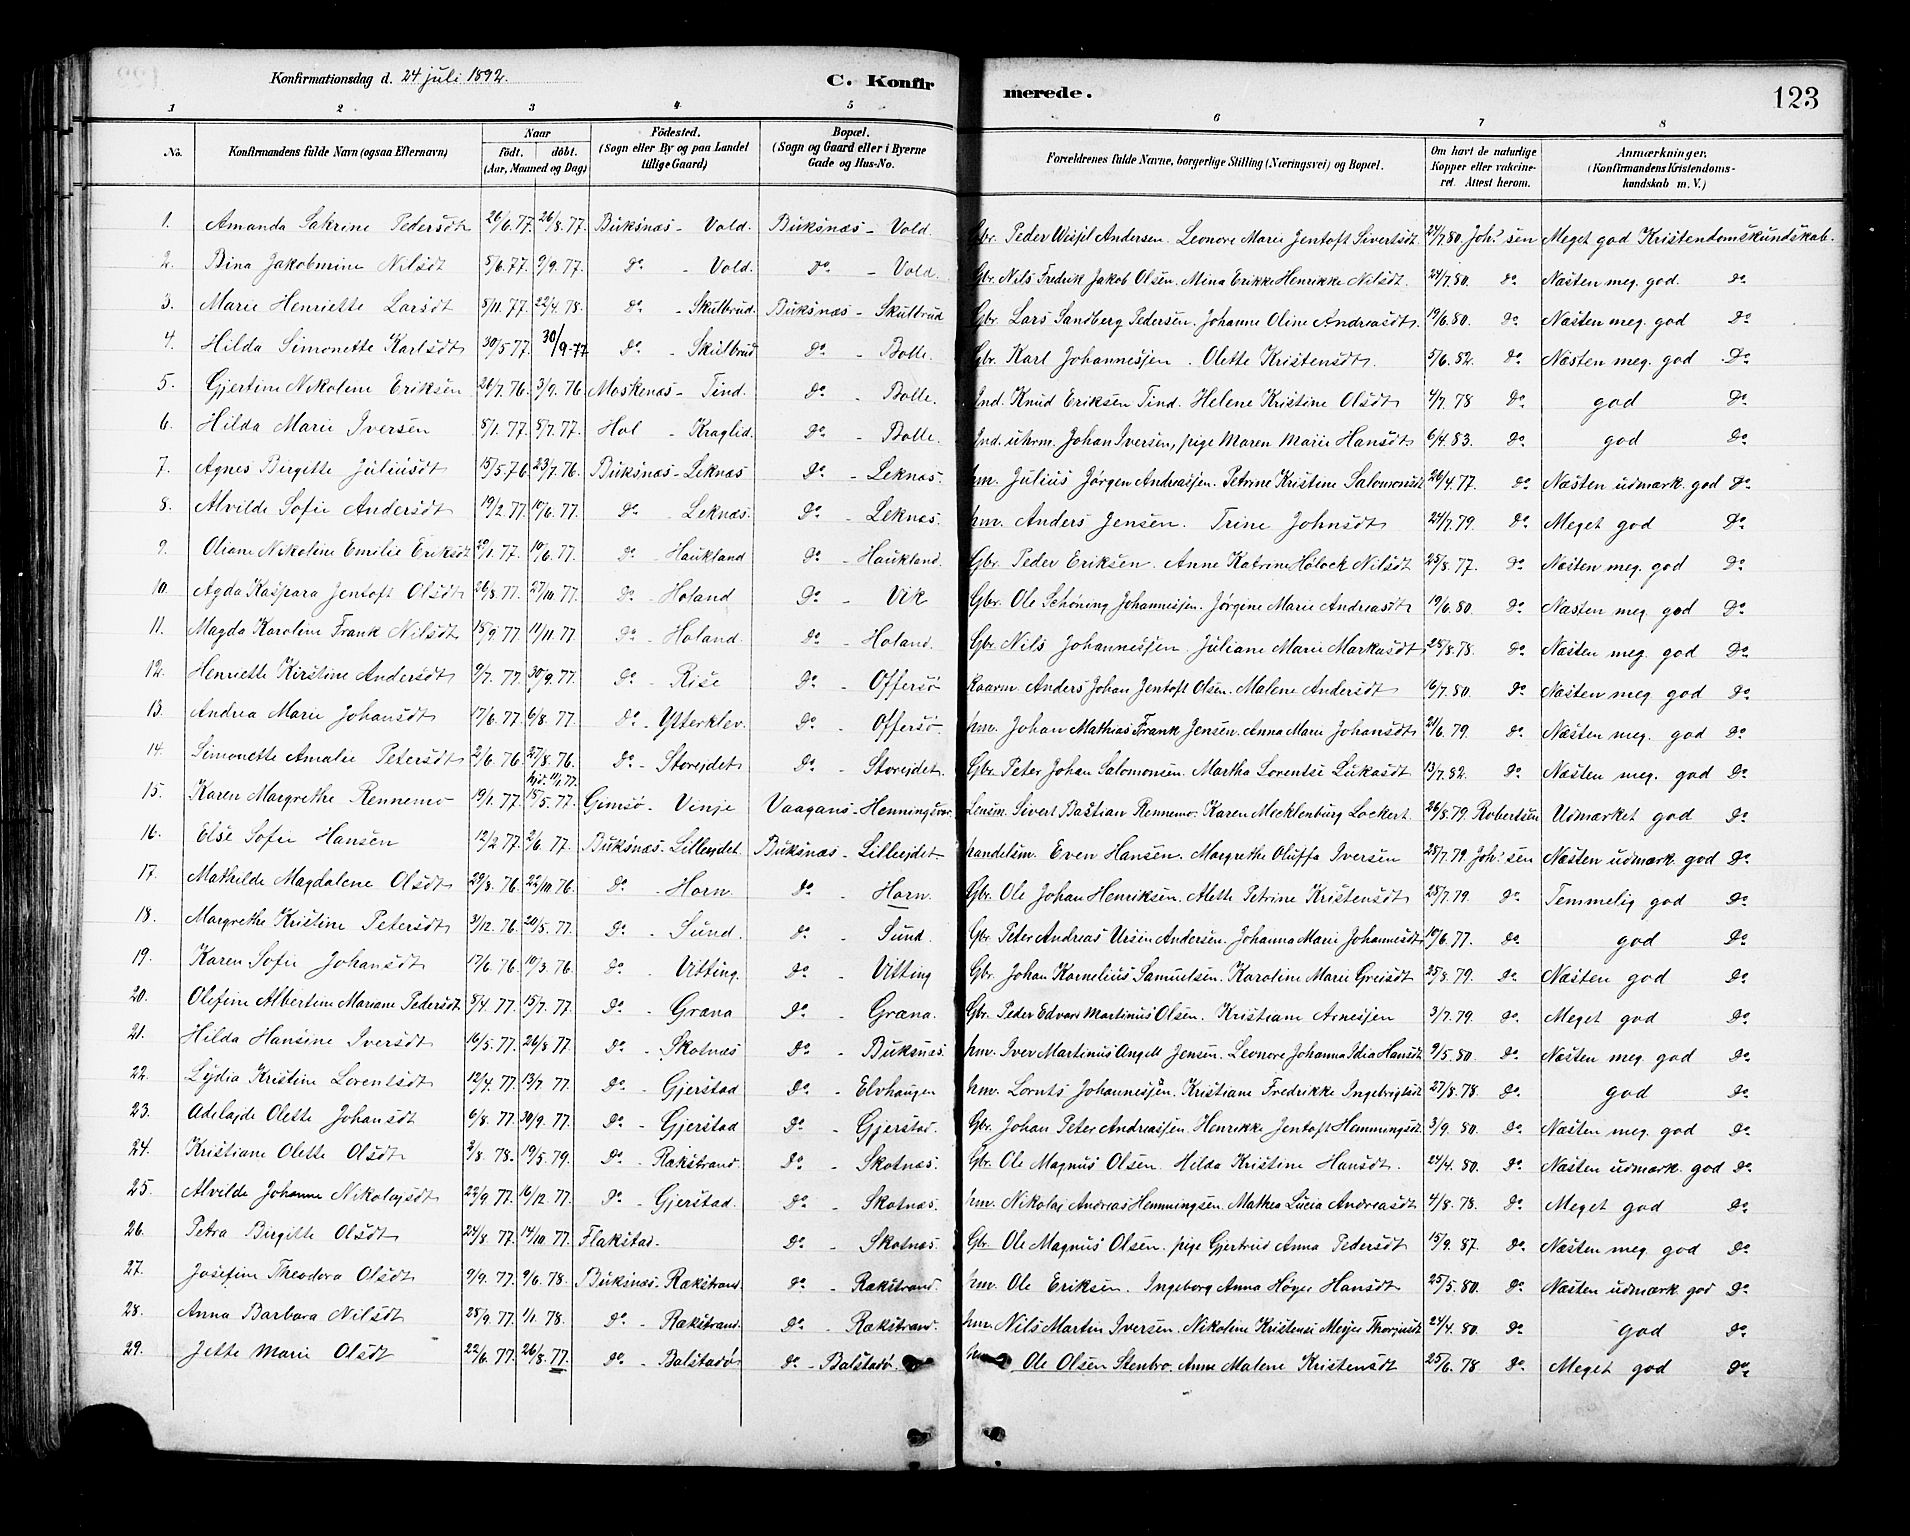 Konfirmationsdag d. 24 juli 1892. C. Konfirmerede. 123
1 2 3 4 5 6 7 8
No. Konfirmandens fulde Navn (ogsaa Efternavn) Naar födt. döbt. (Aar, Maaned og Dag) Födested. (Sogn eller By og paa Landet tillige Gaard) Bopæl. (Sogn og Gaard eller i Byerne Gade og Hus-No. Forældrenes fulde Navne, borgerlige Stilling (Næringsvei) og Bopæl. Om havt de naturlige Kopper eller vakcineret. Attest herom. Anmærkninger. (Konfirmandens Kristendomskundskab m. V.)
1. Amanda Sakrine Pedersdt 26/6.77. 26/8.77. Buksnæs - Vold. Buksnæs - Vold. Gbr. Peder Andersen. Leonore Marie Jentoft Sivertsdt. 24/7.80. Joh.sen Meget god Kristendomskundskab.
2. Bina Jakobmine Nilsdt 5/6.77. 9/9.77. Do - Vold. Do - Vold. Gbr. Nils Fredrik Jakob Olsen. Mina Erikke Henrikke Nilsdt. 24/7.80. Do Næsten meg. god. Do
3. Marie Henriette Larsdt 5/11.77. 22/4.78. Do - Skulbrud. Buksnæs - Skulbrud Gbr. Lars Sandberg Pedersen. Johanne Oline Andreasdt. 19/6.80. Do Næsten meg. god Do
4. Hilda Simonette Karlsdt 30/5.77. 30/9-77 Do - Skulbrud Do - Bolle. Gbr. Karl Johannessen. Olette Kristensdt. 5/6.82. Do Næsten meg. god Do
5. Gjertine Nikoline Eriksen 26/7.76. 3/9.76. Moskenæs - Tind. Do - Bolle. Ind. Knud Eriksen Tind. Helene Kristine Olsdt 4/7.78 Do god Do
6. Hilda Marie Iversen 5/1.77. 8/7.77. Hol - Kraglid. Do - Bolle. Ind. uhrm. Johan Iversen, pige Maren Marie Hansdt 6/4.83. Do god Do
7. Agnes Birgitte Juliusdt 15/5.76 23/7.76. Buksnæs - Leknæs Do - Leknæs. hm. Julius Jørgen Andreassen. Petrine Kristine Salomonsdt 26/4.77. Do Næsten udmærk. god Do
8. Alvilde Sofie Andersdt 19/2.77. 10/6.77. Do - Leknæs. Do - Leknæs. hm. Anders Jensen. Trine Johnsdt 24/7.79. Do Meget god Do
9. Oliane Nikoline Emilie Eriksdt 29/1.77. 10/6.77. Do - Haukland Do - Haukland. Gbr. Peder Eriksen. Anne Katrine Holock Nilsdt 25/8.77. Do Næsten meg. god Do
10. Agda Kaspara Jentoft Olsdt 26/8.77. 27/10.77. Do - Holand Do - Vik Gbr. Ole Schøning Johannessen. Jørgine Marie Andreasdt 19/6.80. Do Næsten meg. god Do
11. Magda Karoline Frank Nilsdt 15/9.77. 11/11.77. Do - Holand. Do - Holand. Gbr. Nils Johannessen. Juliane Marie Markusdt 25/8.78. Do Næsten meg. god Do
12. Henriette Kirstine Andersdt 9/7.77. 30/9.77. Do - Rise Do - Offersø Kaarm. Anders Johan Jentoft Olsen. Malene Andersdt 16/7.80. Do Næsten meg. god Do
13. Andrea Marie Johansdt 17/6.77. 6/8.77. Do - Ytterklev. Do - Offersø. hm. Johan Mathias Frank Jensen. Anna Marie Johansdt 21/6.79. Do Næsten meg. god Do
14. Simonette Amalie Petersdt 2/6.76. 27/8.76. Do - Storejdet Do - Storejdet. Gbr. Peter Johan Salomonsen. Martha Lorentse Lukasdt 13/7.82. Do Næsten meg. god Do
15. Karen Margrethe Rennemo 19/1.77. hjd. 11/1.77. 15/5.77. Gimsø - Vinje Vaagans - Henningsvær Lensm. Sivert Bastian Rennemo. Karen Mecklenburg Lockert 26/8.79. Robertsen Udmærket god Do
16. Else Sofie Hansen 12/2.77. 2/6.77. Buksnæs - Lillejdet. Buksnæs - Lillejdet handelsm. Even Hansen. Margrethe Oluffa Iversen 28/7.79. Joh.sen Næsten udmærk. god Do
17. Mathilde Magdalene Olsdt 29/8.76. 22/10.76. Do - Horn. Do - Horn. Gbr. Ole Johan Henriksen. Alette Petrine Kristensdt 28/7.79. Do Temmelig god Do
18. Margrethe Kristine Petersdt 31/12.76. 20/5.77. Do - Sund. Do - Sund. Gbr. Peter Andreas Ursin Andersen. Johanna Marie Johannesdt 10/6.77. Do god Do
19. Karen Sofie Johansdt 17/6.76. 19/3.76. Do - Utting. Do - Utting Gbr. Johan Kornelius Samuelsen. Karoline Marie Greisdt 25/8.79. Do Næsten god Do
20. Olefine Albertine Mariane Pedersdt. 8/4.77. 15/7.77. Do - Græna Do - Græna. Gbr. Peder Edvard Martinus Olsen. Kristiane Arnessen 3/7.79. Do Meget god Do
21. Hilda Hansine Iversdt 16/5.77. 26/8 77. Do - Skotnæs Do - Buksnæs. hm. Iver Martinus Angell Jensen. Leonore Johanna Idia Hansdt 9/5.80. Do Næsten meg. god Do
22. Lydia Kristine Lorentsdt 12/4.77. 13/7.77. Do - Gjerstad Do - Elvhaugen hm. Lornts Johannessen. Kristiane Fredrikke Ingebrigtsdt 27/8.78. Do god Do
23. Adelajde Olette Johansdt 6/8.77. 30/9.77. Do - Gjerstad Do - Gjerstad. Gbr. Johan Peter Andreassen. Henrikke Jentoft Hemmingsdt 3/9.80. Do Næsten meg. god Do
24. Kristiane Olette Olsdt 3/8.78. 19/5.79. Do - Rækstrand. Do - Skotnæs. Gbr. Ole Magnus Olsen. Hilda Kristine Hansdt. 24/4.80. Do Næsten udmærk. god Do
25. Alvilde Johanne Nikolajsdt 22/9.77. 16/12.77. Do - Gjerstad. Do - Skotnæs. hm. Nikolaj Andreas Hemmingsen. Mathea Lucia Andreasdt 4/8.78. Do Meget god Do
26. Petra Birgitte Olsdt 24/8 77. 14/10 77. Flakstad. Do - Skotnæs. Gbr. Ole Magnus Olsen. pige Gjertrud Anna Pedersdt 15/9.87. Do Næsten meg. god Do
27. Josefine Theodora Olsdt 9/9.77. 9/6.78. Buksnæs - Rækstrand Do - Rækstrand. hm. Ole Eriksen. Ingeborg Anna Høyer Hansdt 25/5.80. Do Næsten udmærk. god Do
28. Anna Barbara Nilsdt 28/9.77. 1/1.78. Do - Rækstrand. Do - Rækstrand. hm. Nils Martin Iversen. Nikoline Kristense Mejer 24/4.80. Do god Do
29. Jette Marie Olsdt 22/6.77. 26/8.77. Do - Balstadø Do - Balstadø hm. Ole Olsen Stenbro. Anne Malene Kristensdt 25/6.78 Do Meget god Do